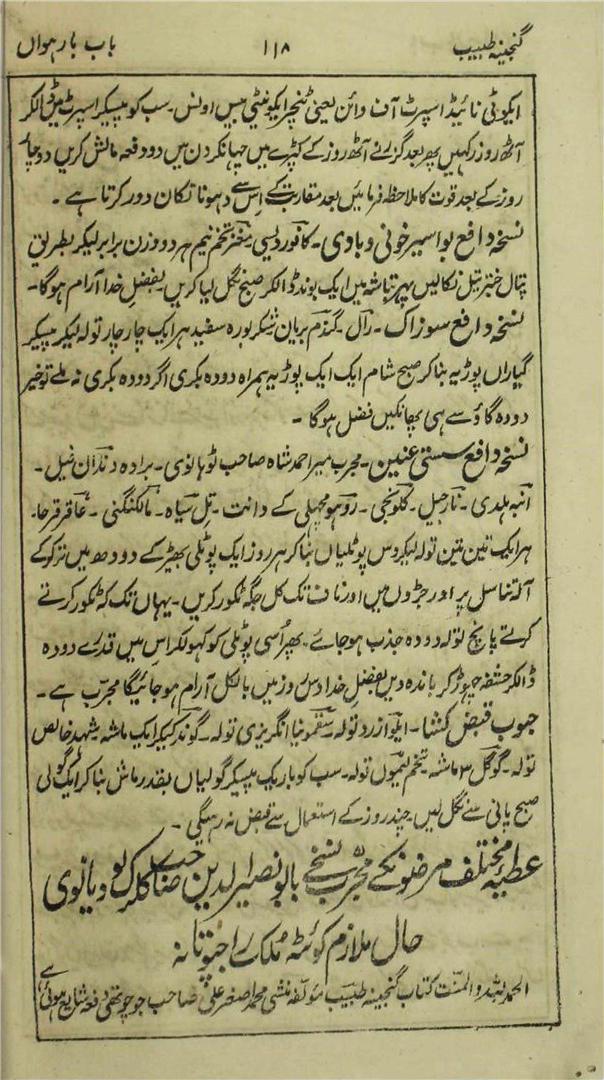 گنجینہ طبیب ۱۱۸ باب بارہواں
ایکوٹی نائیڈ اسپرٹ آف وائن یعنی ٹنچر ایکونیٹی میں اونس۔ سب کو پیسکر اسپرٹ میں ڈالکر
آٹھ روز رکہیں پھر بعد گزرنے آٹھ روز کے کپڑے میں چہانکر دن میں دو دفعہ مالش کریں دو چار
روز کے بعد قوت کا ملاحظہ فرمائیں بعد مقاربت کے اس سے دہونا تکان دور کرتا ہے۔
نسخہ دافع بواسیر خونی و بادی۔ کافور دیسی مغز تخم نیم ہر دو وزن برابر لیکر بطریق
پتال جنتر تیل نکالیں پہر بتاشہ میں ایک بوند ڈالکر صبح نگل لیا کریں بفضلِ خدا آرام ہوگا۔
نسخہ دافع سوزاک۔ رال۔ گندم بریان شکر بورہ سفید ہر ایک چار چار تولہ لیکر پیسکر
گیاراں پوڑیہ بناکر صبح شام ایک ایک پوڑیہ ہمراہ دودہ بکری اگر دودہ بکری نہ ملے تو خیر
دودہ گاؤ سے ہی پھانکیں فضل ہوگا۔
نسخہ دافع سستی عنین۔ مجرب میر احمد شاہ صاحب ٹوہانوی۔ برادہ دندان فیل۔
آنبہ ہلدی۔ نارجیل۔ کلونجی۔ روہو مچھلی کے دانت۔ تل سیاہ۔ مالکنگنی۔ عاقر قرحا۔
ہر ایک تین تین تولہ لیکر دس پوٹلیاں بناکر ہر روز ایک پوٹلی بھیڑ کے دودھ میں تر کر کے
آلہ تناسل پر اور جڑوں میں اور ناف تک کل جگہ ٹکور کریں۔ یہاں تک کہ ٹکور کرتے
کرتے پانچ تولہ دودہ جذب ہوجائے۔ پھر اُسی پوٹلی کو کہولکر اس میں قدرے دودہ
ڈالکر حشفہ چہوڑ کر باندہ دیں بفضلِ خدا دس روز میں بالکل آرام ہوجائیگا مجرب ہے۔
حبوب قبض کشا۔ ایلوا زرد تولہ سقمونیا انگریزی تولہ۔ گوند کیکر ایک ماشہ شہد خالص
تولہ۔ گوگل ۳ ماشہ تخم لیموں تولہ۔ سب کو باریک پیسکر گولیاں بقدر ماش بناکر ایک گولی
صبح پانی سے نگل لیں۔ چند روز کے استعمال سے قبض نہ رہیگی۔
عطیہ مختلف مرضونکے مجرب نسخے بابو نصیرالدین صاحب کلرک لودیانوی
حال ملازم کوئٹہ ملک راجپوتانہ
الحمد للہ والمنت کتاب گنجینہ طبیب مؤلفہ منشی محمد اصغر علی صاحب جو چوتھی دفعہ شایع ہوئی ہے